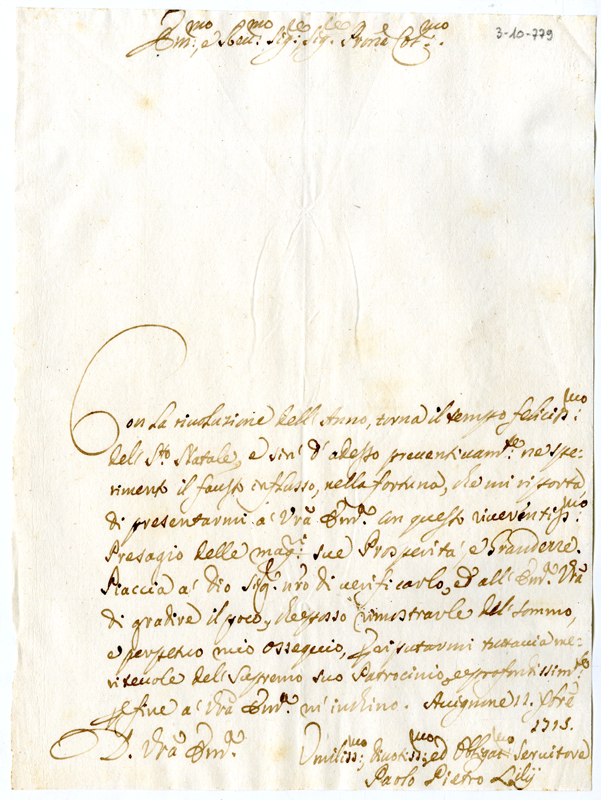 Em:mo, e Rev:mo Sig:re Sig:re Pron̄e Col:mo
3-10-779
Con la rivoluzione dell'Anno, torna il tempo feliciss:mo
dell S:to Natale, e sin' d'adesso preventivam:te ne spe-
rimento il fausto influsso, nella fortuna, che mi vi sorta
di presentarmi a' Vr̄a Em:za con questo riverentiss:mo
Presagio delle mag:ri sue Prosperità e Grandezze.
Piaccia a' Dio Sig:re nr̄o di verificarlo, Et all' Em:za Vr̄a
di gradire il poco, che posso rimostrarle dell sommo,
e perpetuo mio ossequio, per riputarmi tuttavia me-
ritevole dell Supremo suo Patrocinio, e profondissim:te
per fine a' Vr̄a Em:za m' inchino. Avignone 11. Xbr̄e
1715.
D. Vr̄a Em:za
Umiliss:mo, Divotiss:mo ed Obbligat:mo Servitore
Paolo Pietro Lilij